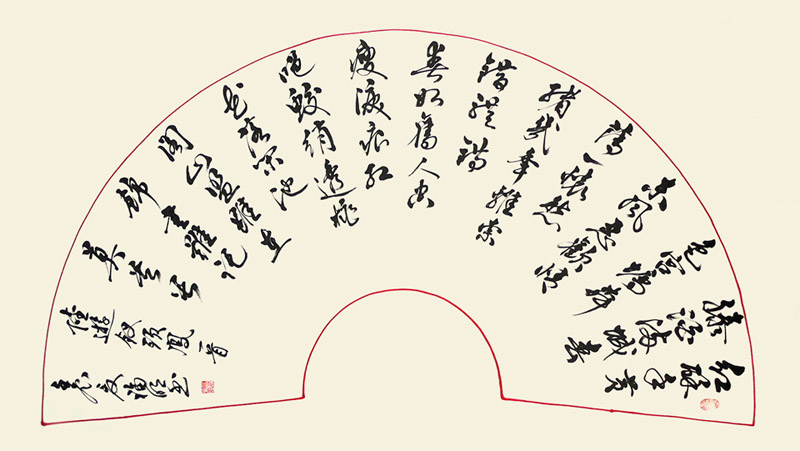 红酥手黄
縢酒满城春
色宫墙柳
东风恶歡情
薄一怀愁
绪几年離索
错错错
春如旧人空
瘦泪痕红
浥鲛绡透桃
花落闲池
阁山盟雖在
锦书難托
莫莫莫
陸游钗頭鳳一首